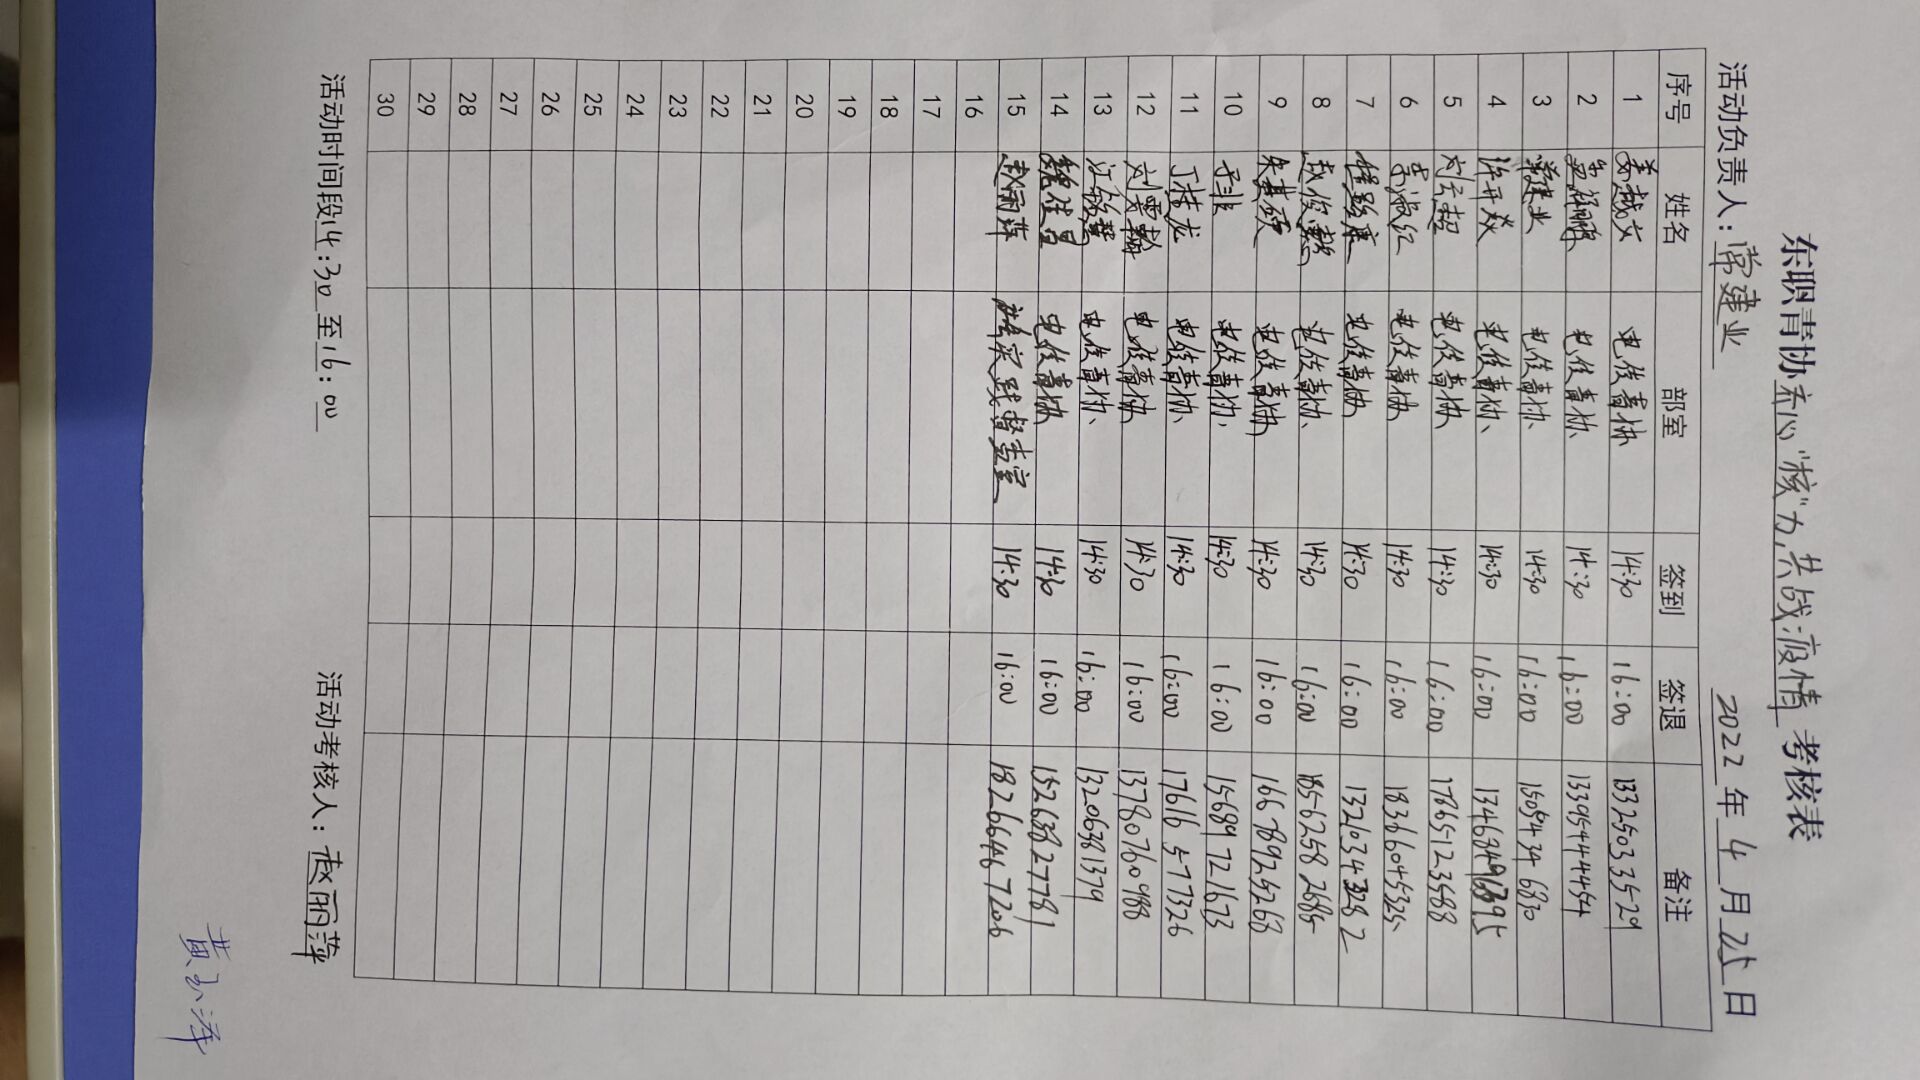 东职青协齐心“核”力,共战疫情 考核表
活动负责人:常建业 2022年4月25日
序号 姓名 部室 签到 签退 备注
1 姜越文 电信青协 14:30 16:00 13325033529
2 电信青协 14:30 16:00 13395444454
3 常建业 电信青协 14:30 16:00 15054346830
4 许开焱 电信青协 14:30 16:00
5 刘云超 电信青协 14:30 16:00 17865123588
6 电信青协 14:30 16:00 18366045325
7 电信青协 14:30 16:00 13203433282
8 电信青协 14:30 16:00 18562582685
9 朱其硕 电信青协 14:30 16:00 16678925268
10 电信青协 14:30 16:00 15689721673
11 丁桂龙 电信青协 14:30 16:00 17616577326
12 刘雯翰 电信青协 14:30 16:00 13780760988
13 电信青协 14:30 16:00 13206381379
14 魏佳星 电信青协 14:30 16:00 15263827781
15 赵丽萍 督查室 14:30 16:00 18266467206
16
17
18
19
20
21
22
23
24
25
26
27
28
29
30
活动时间段14:30至16:00 活动考核人:赵丽萍